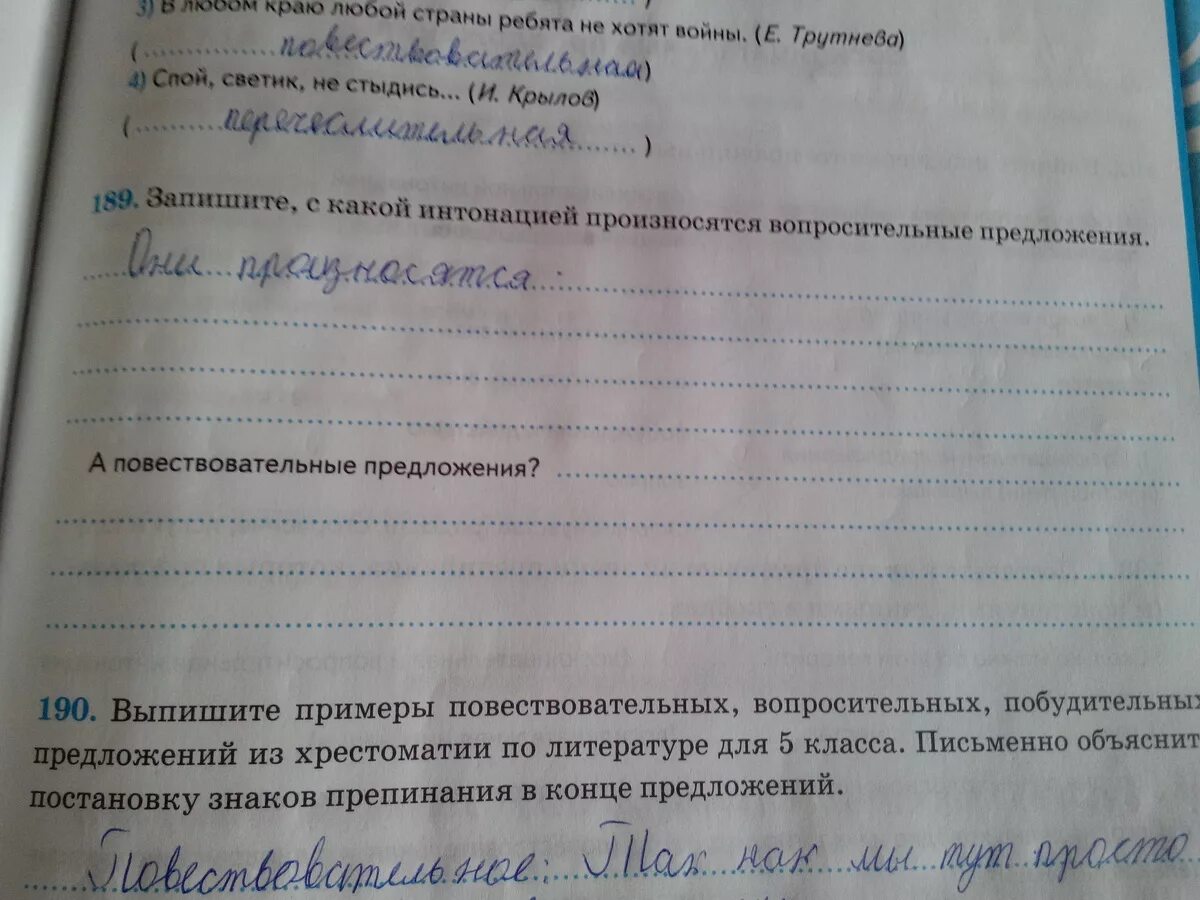 3) В любом краю любой страны ребята не хотят войны. (Е. Трутнева)
(............повествовательная)
4) Спой, светик, не стыдись... (И. Крылов)
(..........перечеслительная.......)
189. Запишите, с какой интонацией произносятся вопросительные предложения.
Они произносятся :
А повествовательные предложения?
190. Выпишите примеры повествовательных, вопросительных, побудительных
предложений из хрестоматии по литературе для 5 класса. Письменно объяснит
постановку знаков препинания в конце предложений.
Повествовательное: Так как мы тут просто